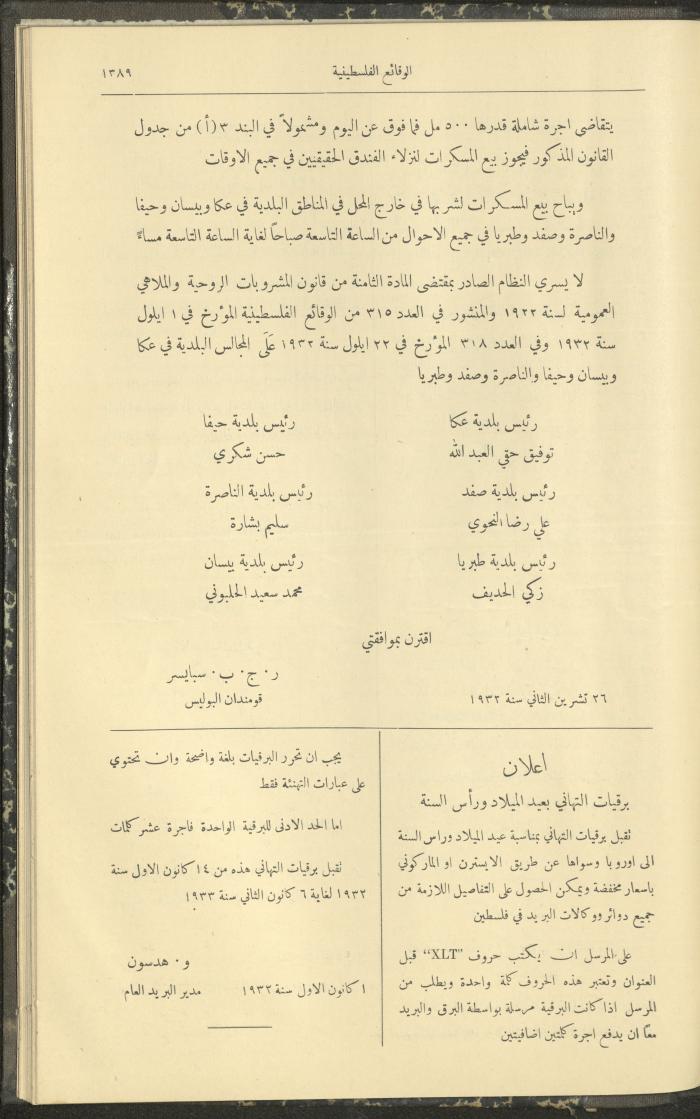 الوقائع الفلسطينية
١٣٨٩
يتقاضى اجرة شاملة قدرها ٥٠٠ مل فما فوق عن اليوم ومشمولاً في البند ٣(أ) من جدول
القانون المذكور فيجوز بيع المسكرات لنزلاء الفندق الحقيقيين في جميع الاوقات
ويباح بيع المسكرات لشربها في خارج المحل في المناطق البلدية في عكا وبيسان وحيفا
والناصرة وصفد وطبريا في جميع الاحوال من الساعة التاسعة صباحاً لغاية الساعة التاسعة مساءً
لا يسري النظام الصادر بمقتضى المادة الثامنة من قانون المشروبات الروحية والملاهي
العمومية لسنة ١٩٢٢ والمنشور في العدد ٣١٥ من الوقائع الفلسطينية المؤرخ في ١ ايلول
سنة ١٩٣٢ وفي العدد ٣١٨ المؤرخ في ٢٢ ايلول سنة ١٩٣٢ عَلَى المجالس البلدية في عكا
وبيسان وحيفا والناصرة وصفد وطبريا
رئيس بلدية عكا
توفيق حقي العبد الله
رئيس بلدية حيفا
حسن شكري
رئيس بلدية صفد
علي رضا النحوي
رئيس بلدية الناصرة
سليم بشارة
رئيس بلدية طبريا
زكي الحديف
رئيس بلدية بيسان
محمد سعيد الحلبوني
اقترن بموافقتي
ر٠ ج٠ ب٠ سبايسر
قومندان البوليس
٢٦ تشرين الثاني سنة ١٩٣٢
اعلان
برقيات التهاني بعيد الميلاد ورأس السنة
تقبل برقيات التهاني بمناسبة عيد الميلاد وراس السنة
الى اوروبا وسواها عن طريق الايسترن او الماركوني
باسعار مخفضة ويمكن الحصول على التفاصيل اللازمة من
جميع دوائر ووكالات البريد في فلسطين
على المرسل ان يكتب حروف "XLT“ قبل
العنوان وتعتبر هذه الحروف كلمة واحدة ويطلب من
المرسل اذا كانت البرقية مرسلة بواسطة البرق والبريد
معاً ان يدفع اجرة كلمتين اضافيتين
يجب ان تحرر البرقيات بلغة واضحة وان تحتوي
على عبارات التهنئة فقط
اما الحد الادنى للبرقية الواحدة فاجرة عشر كلمات
تقبل برقيات التهاني هذه من ١٤ كانون الاول سنة
١٩٣٢ لغاية ٦ كانون الثاني سنة ١٩٣٣
و٠ هدسون
١ كانون الاول سنة ١٩٣٢ مدير البريد العام